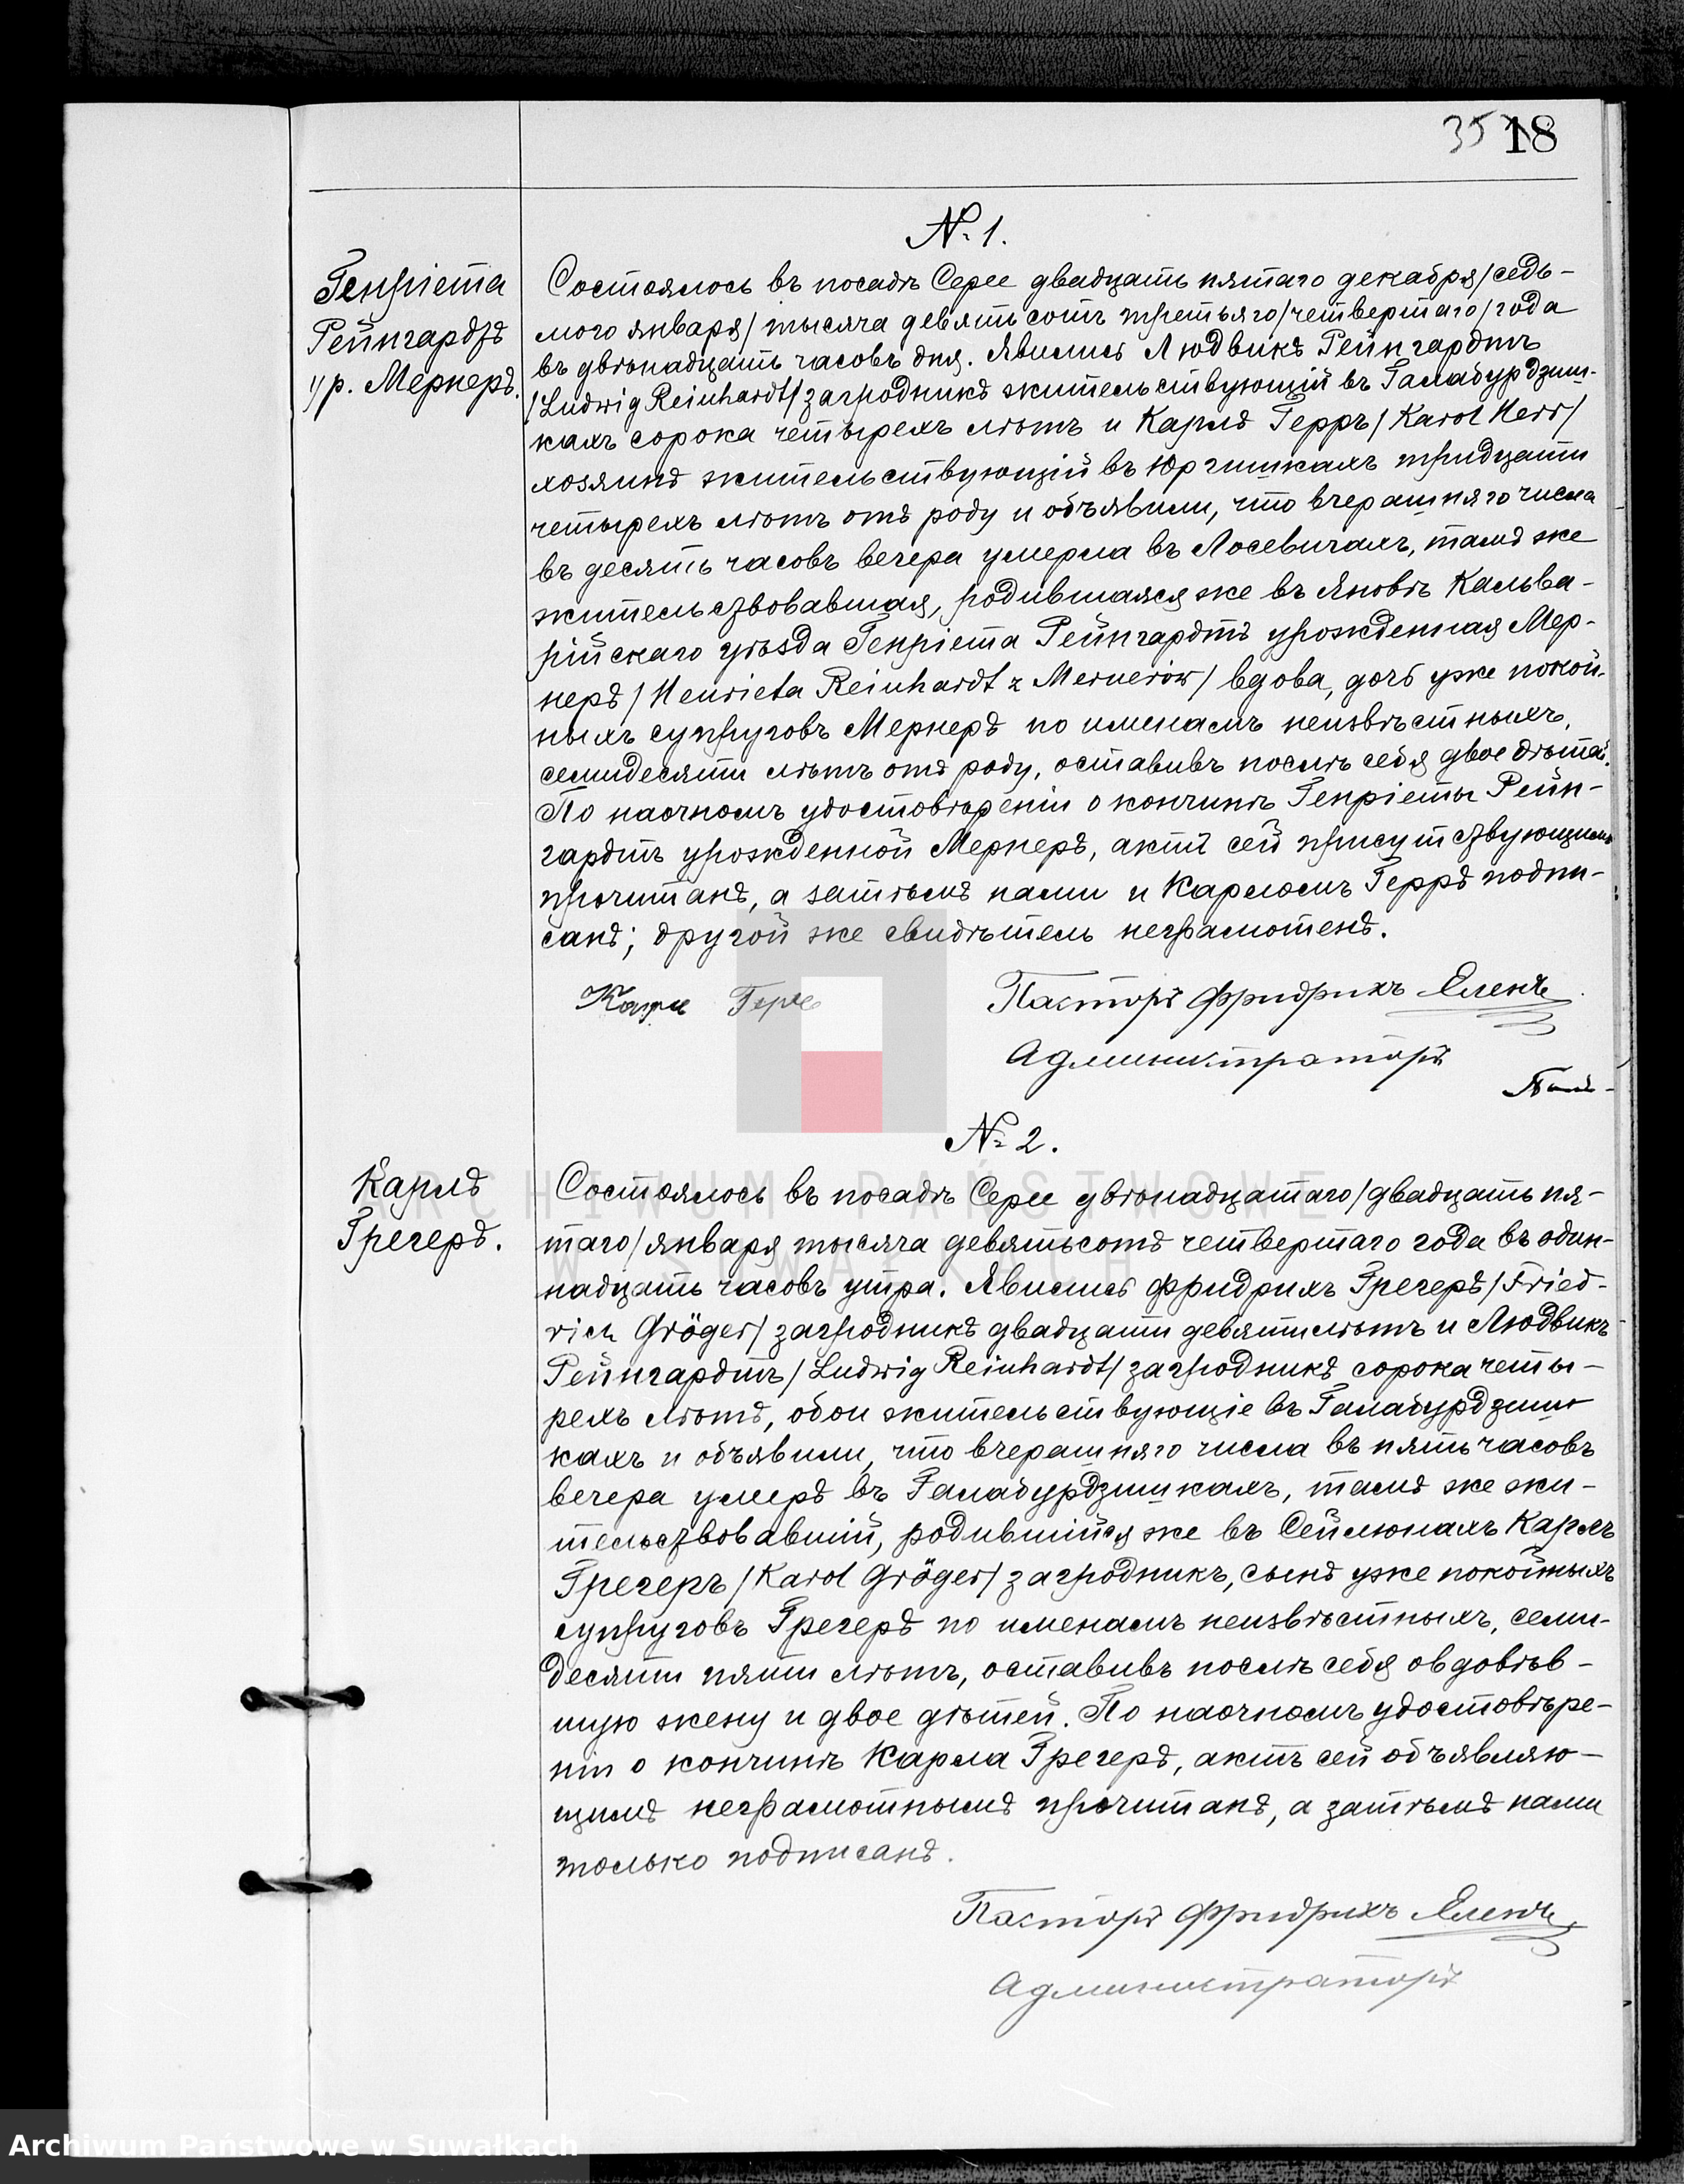 35 18
№ 1.
Генріета
Рейнгардтъ
ур. Мернеръ.
Состоялось въ посадѣ Серее двадцать пятаго декабря /седь-
мого января/ тысяча девятьсотъ третьяго /четвертаго/ года
въ двѣнадцать часовъ дня. Явились Людвикъ Рейнгардтъ
/Ludwig Reinhardt/ загродникъ жительствующій въ Галабурдзиш-
кахъ сорока четырехъ лѣтъ и Карлъ Герръ /Karol Herr/
хозяинъ жительствующій въ Юргишкахъ тридцати
четырехъ лѣтъ отъ роду и объявили, что вчерашняго числа
въ десять часовъ вечера умерла въ Лосевичахъ, тамъ же
жительствовавшая, родившаяся же въ Яновѣ Кальва-
рійскаго уѣзда Генріета Рейнгардтъ урожденная Мер-
неръ /Henrieta Reinhardt z Mernerów/ вдова, дочь уже покой-
ныхъ супруговъ Мернеръ по именамъ неизвѣстныхъ,
семидесяти лѣтъ отъ роду, оставивъ послѣ себя двое дѣтей.
По наочномъ удостовѣреніи о кончинѣ Генріеты Рейн-
гардтъ урожденной Мернеръ, актъ сей присутствующимъ
прочитанъ, а затѣмъ нами и Карломъ Герръ подпи-
санъ; другой же свидѣтель неграмотенъ.
Карл Герр
Пасторъ Фридрихъ Еленъ
Администраторъ
№ 2.
Карлъ
Грегеръ.
Состоялось въ посадѣ Серее двѣнадцатаго /двадцать пя-
таго/ января тысяча девятьсотъ четвертаго года въ один-
надцать часовъ утра. Явились Фридрихъ Грегеръ /Fried-
rich Gröger/ загродникъ двадцати девяти лѣтъ и Людвикъ
Рейнгардтъ /Ludwig Reinhardt/ загродникъ сорока четы-
рехъ лѣтъ, обои жительствующіе въ Галабурдзиш-
кахъ и объявили, что вчерашняго числа въ пять часовъ
вечера умеръ въ Галабурдзишкахъ, тамъ же жи-
тельствовавшій, родившійся же въ Сейлюнахъ Карлъ
Грегеръ /Karol Gröger/ загродникъ, сынъ уже покойныхъ
супруговъ Грегеръ по именамъ неизвѣстныхъ, семи-
десяти пяти лѣтъ, оставивъ послѣ себя овдовѣв-
шую жену и двое дѣтей. По наочномъ удостовѣре-
ніи о кончинѣ Карла Грегеръ, актъ сей объявляю-
щимъ неграмотнымъ прочитанъ, а затѣмъ нами
только подписанъ.
Пасторъ Фридрихъ Еленъ
Администраторъ
ARCHIWUM PAŃSTWOWE
W SUWAŁKACH
Archiwum Państwowe w Suwałkach